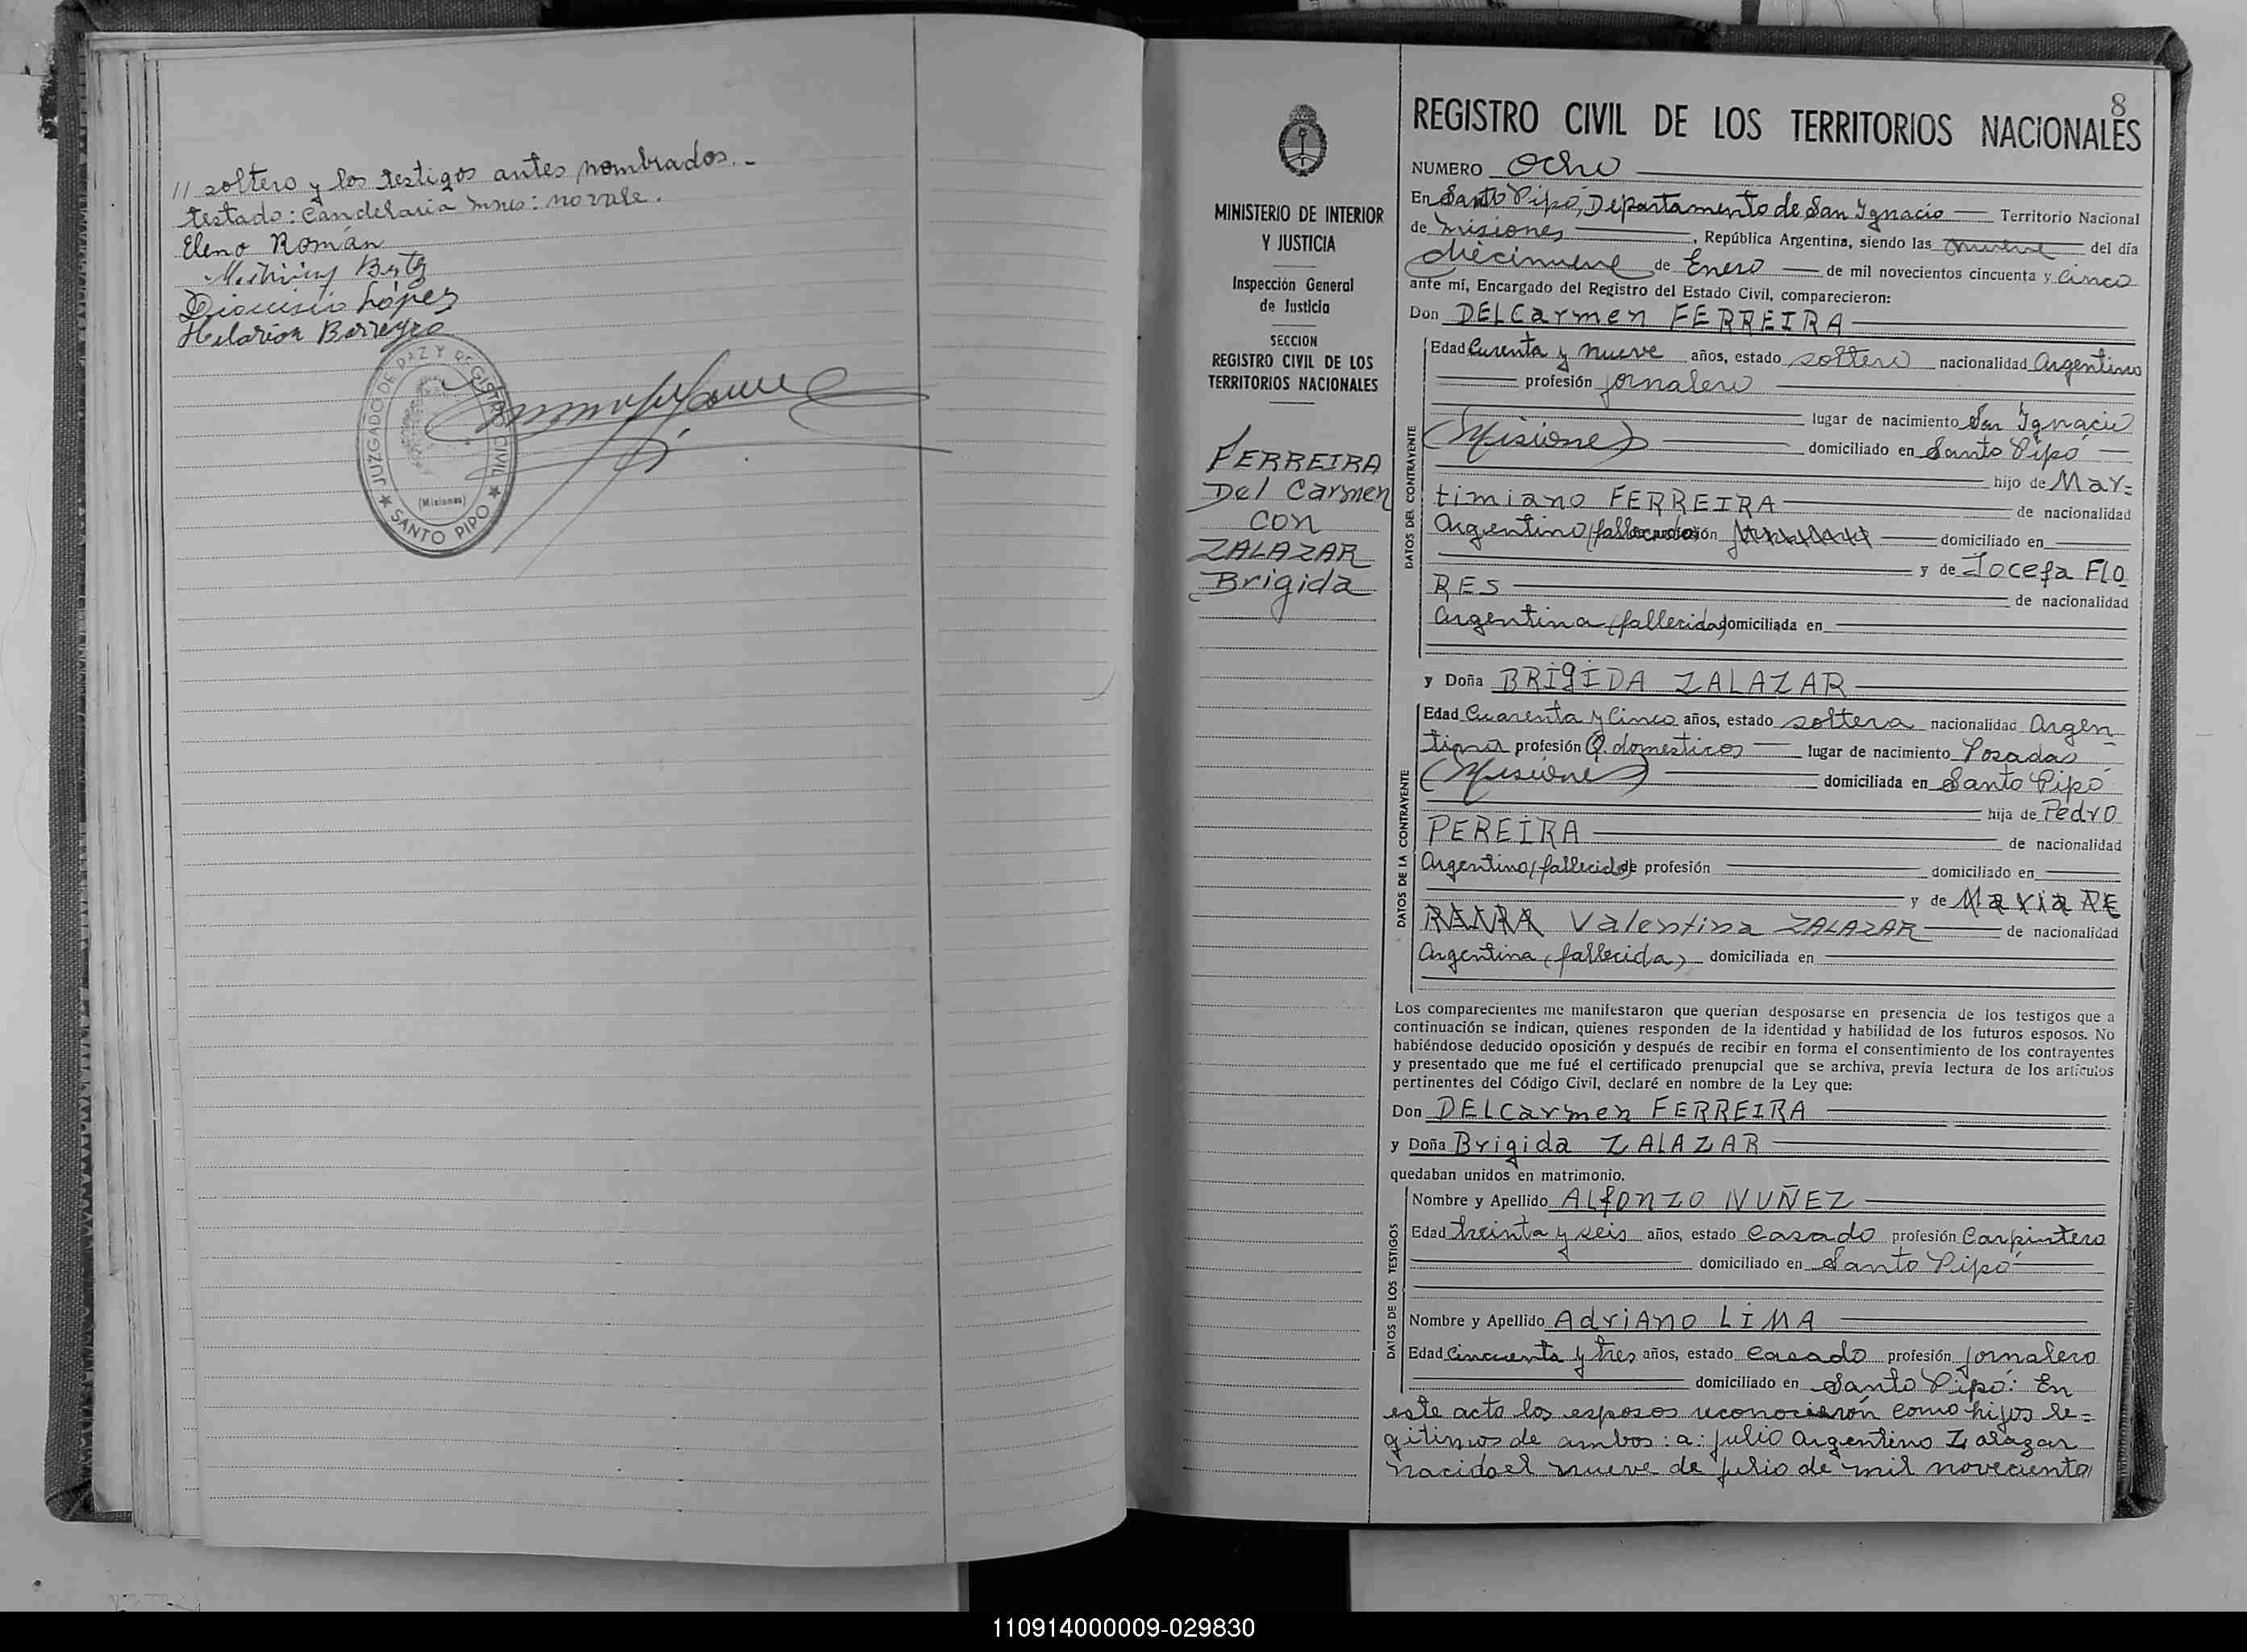 // soltero y los testigos antes nombrados.-
testado: Candelaria : no vale.
Eleno Román
Dionisio López
Hilarión Barreyro
JUZGADO DE PAZ Y REGISTRO CIVIL
(Misiones)
★ SANTO PIPO ★
MINISTERIO DE INTERIOR
Y JUSTICIA
Inspección General
de Justicia
SECCION
REGISTRO CIVIL DE LOS
TERRITORIOS NACIONALES
FERREIRA
Del Carmen
con
ZALAZAR
Brigida
8
REGISTRO CIVIL DE LOS TERRITORIOS NACIONALES
NUMERO Ocho
En Santo Pipó, Departamento de San Ignacio Territorio Nacional
de Misiones, República Argentina, siendo las nueve del día
diecinueve de Enero de mil novecientos cincuenta y cinco
ante mí, Encargado del Registro del Estado Civil, comparecieron:
Don DELCarmen FERREIRA
DATOS DEL CONTRAYENTE
Edad Curenta y nueve años, estado soltero nacionalidad Argentino
profesión jornalero
lugar de nacimiento San Ignacio
(Misiones) domiciliado en Santo Pipó
hijo de Mar=
timiano FERREIRA de nacionalidad
Argentino (fallecido) profesión domiciliado en
y de Jocefa FLO
RES de nacionalidad
Argentina (fallecida) domiciliada en
y Doña BRIGIDA ZALAZAR
DATOS DE LA CONTRAYENTE
Edad Cuarenta y Cinco años, estado soltera nacionalidad Argen
tina profesión Q. domesticos lugar de nacimiento Posadas
(Misiones) domiciliada en Santo Pipó
hija de Pedro
PEREIRA de nacionalidad
Argentino (fallecido) de profesión domiciliado en
y de Maria PE
REIRA Valentina ZALAZAR de nacionalidad
Argentina (fallecida) domiciliada en
Los comparecientes me manifestaron que querían desposarse en presencia de los testigos que a
continuación se indican, quienes responden de la identidad y habilidad de los futuros esposos. No
habiéndose deducido oposición y después de recibir en forma el consentimiento de los contrayentes
y presentado que me fué el certificado prenupcial que se archiva, previa lectura de los artículos
pertinentes del Código Civil, declaré en nombre de la Ley que:
Don DELCarmen FERREIRA
y Doña Brigida ZALAZAR
quedaban unidos en matrimonio.
DATOS DE LOS TESTIGOS
Nombre y Apellido ALfonzo NUÑEZ
Edad treinta y seis años, estado Casado profesión Carpintero
domiciliado en Santo Pipó
Nombre y Apellido AdriANO LIMA
Edad Cincuenta y tres años, estado casado profesión jornalero
domiciliado en Santo Pipó: En
este acto los esposos reconocierón como hijos le=
gitimos de ambos: a: julio Argentino Zalazar
nacido el nueve de julio de mil novecientos
110914000009-029830